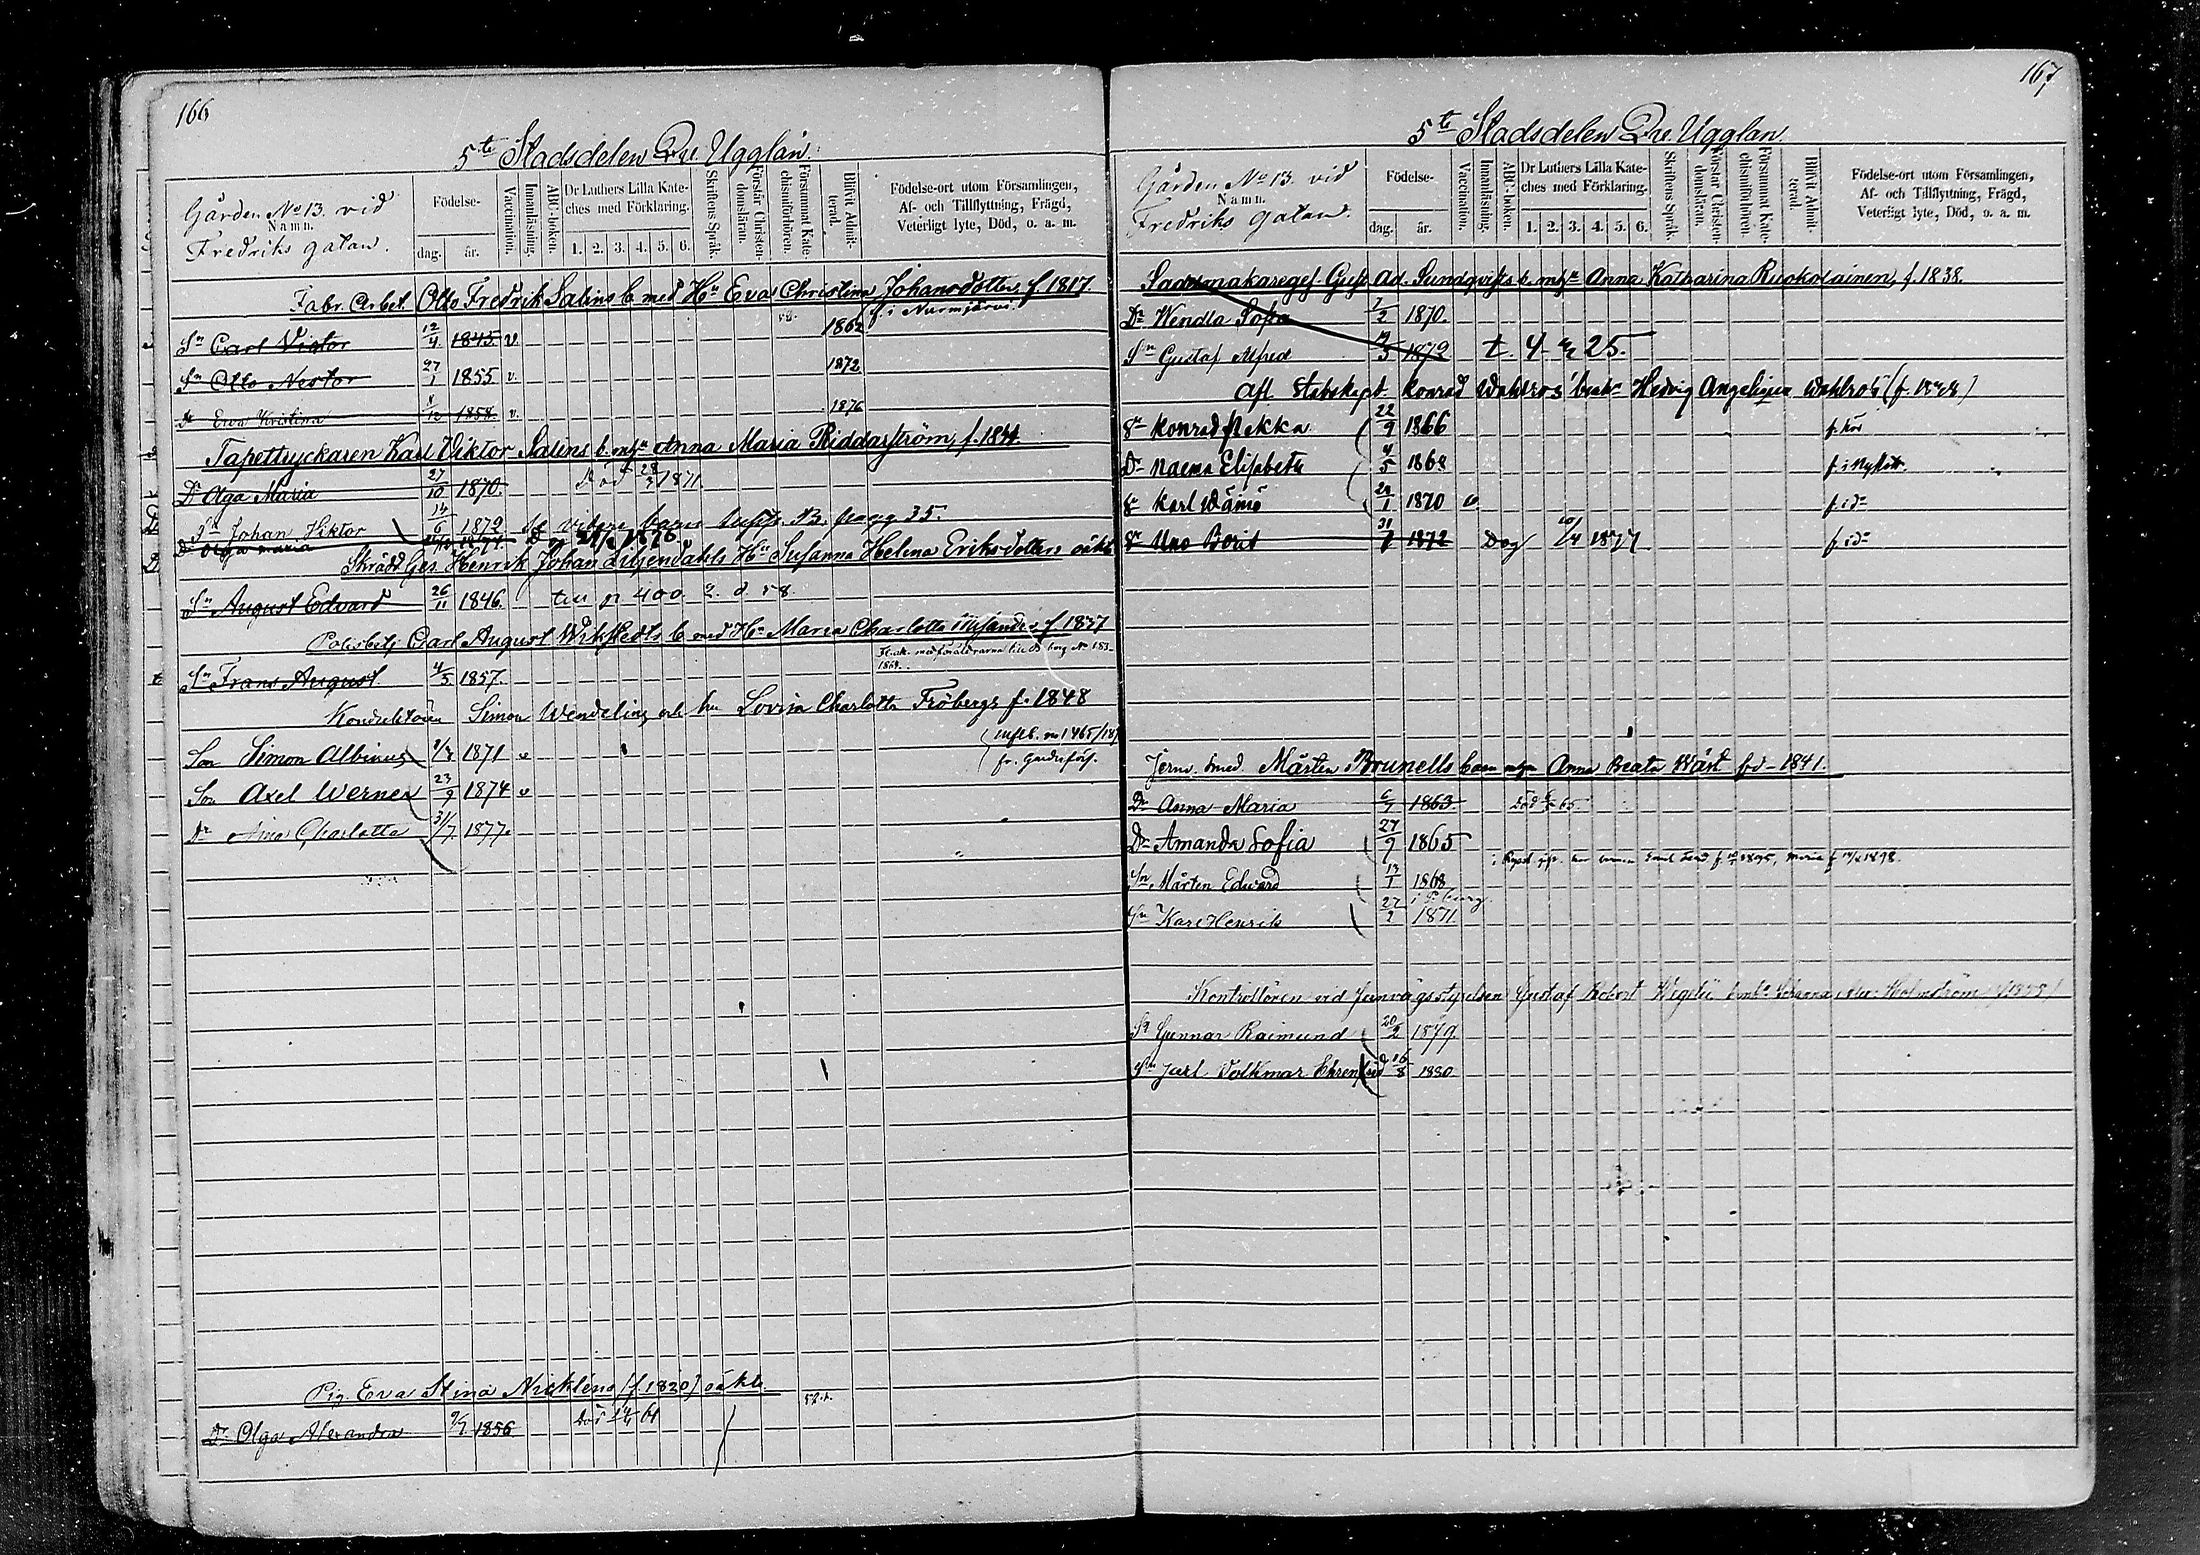 166
5te Stadsdelen Qu. Ugglan.
Gården No 13. vid
Namn.
Fredriks gatan.
Födelse-
dag. år.
Vaccination.
Innanläsning.
ABC-boken.
Dr Luthers Lilla Kate-
ches med Förklaring.
1. 2. 3. 4. 5. 6.
Skriftens Språk.
Förstår Christen-
domsläran.
Försummat Kate-
chismiförhören.
Blifvit Admit-
terad.
Födelse-ort utom Församlingen,
Af- och Tillflyttning, Frägd,
Veterligt lyte, Död, o. a. m.
Fabr. Arbet. Otto Fredrik Salins b. med Hu Eva Christina Johansdotter f 1817
f. i Nurmijärvi.
Sn Carl Victor 12/4 1845 v. 1862
Sn Otto Nestor 27/1 1855 v. 1872
Dr Eva Kristina 1858. v. 1876
Tapettryckaren Karl Viktor Salins b. Anna Maria Riddarström, f. 1844
Dr Olga Maria 27/10 1870. Död 1871.
Sn Johan Viktor 14/6 1872 Se vidare barns Suppl. B. pag 35.
Dr Olga Maria 1874. D. 1876
Skrädd Ges. Henrik Johan Liljendahls Hu Susanna Helena Eriksdotters oäkta
Sn August Edvard 26/11 1846. till p 400 2. d. 58.
Polisbetj Carl August Wikstedts b med Hu Maria Charlotta f 1837
med föräldrarna till No 183
1869.
Sn Frans August. 4/5. 1857.
Konduktören Simon Wendelins och hu Lovisa Charlotta Fröbergs f. 1848
Son Simon Albinus 1871 v inflb. no 1465/187
fr.
Son Axel Werner 23/9 1874 v
Dr Aina Charlotta 31/7. 1877.
Pig. Eva Stina Nickléns (f. 1830) oäkta.
Dr Olga Alexandra 9/7. 1856 Död 61
167
5te Stadsdelen Qu. Ugglan.
Gården No 13. vid
Namn.
Fredriks gatan.
Födelse-
dag. år.
Vaccination.
Innanläsning.
ABC-boken.
Dr Luthers Lilla Kate-
ches med Förklaring.
1. 2. 3. 4. 5. 6.
Skriftens Språk.
Förstår Christen-
domsläran.
Försummat Kate-
chismiförhören.
Blifvit Admit-
terad.
Födelse-ort utom Församlingen,
Af- och Tillflyttning, Frägd,
Veterligt lyte, Död, o. a. m.
Sadelmakareges. Gust. Ad. Sundqvists b. Anna Katharina Ruokolainen, f. 1838.
Dr Wendla Sofia 1/2 1870.
Sn Gustaf Alfred 1872 t. 4 25.
Afl. Stabskapt. Konrad Wahlroos' Hedvig Angelique Wahlroos (f. 1838)
Sn Konrad Pekka 22/9 1866
Dr Naema Elisabeth 4/5 1868
Sn Karl Wäinö 28/1 1870 v. f. i do
Sn Uno Borit 31/7 1872 Dog 10/4 1877 f. i do
Jernv. smed Mårten Brunells barn Anna Beata Wärt föd. 1841.
Dr Anna Maria 6/7 1863. Död 65
Dr Amanda Sofia 27/9 1865
1895, Maria f 1898.
Sn Mårten Edvard 13/1 1868
Sn Karl Henrik 27/2 1871.
Kontrollören vid Jernvägsstyrelsen Gustaf Robert Holmström
Sn Gunnar Raimund 20/2 1879.
Sn Jarl Volkmar Ehrenfrid 16/8 1880